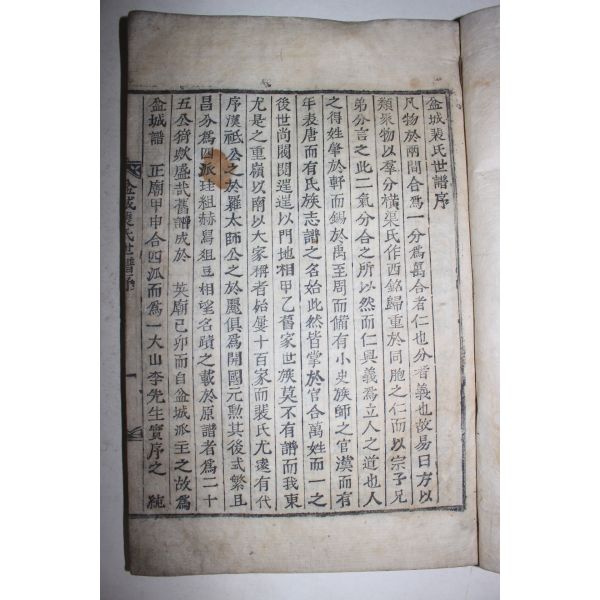 盆城裴氏世譜序
凡物於兩間合爲一分爲萬合者仁也分者義也故易曰方以
類聚物以羣分橫渠氏作西銘歸重於同胞之仁而以宗子兄
弟分言之此一氣分合之所以然而仁與義爲立人之道也人
之得姓肇於軒而錫於禹至周而備有小史族師之官漢而有
年表唐而有氏族志譜之名始此然皆掌於官合萬姓而一之
後世尚閥閱遑遑以門地相甲乙舊家世族莫不有譜而我東
尤是之重嶺以南以大家稱者殆屢十百家而裴氏尤遠有代
序漢祗公之於羅太師公之於麗俱爲開國元勳其後式繁且
昌分爲四派珪組赫舃俎豆相望名蹟之載於原譜者爲二十
五公猗歟盛哉舊譜成於 英廟己卯而自盆城派主之故爲
盆城譜 正廟甲申合四派而爲一大山李先生實序之 純
盆城裴氏世譜序
一